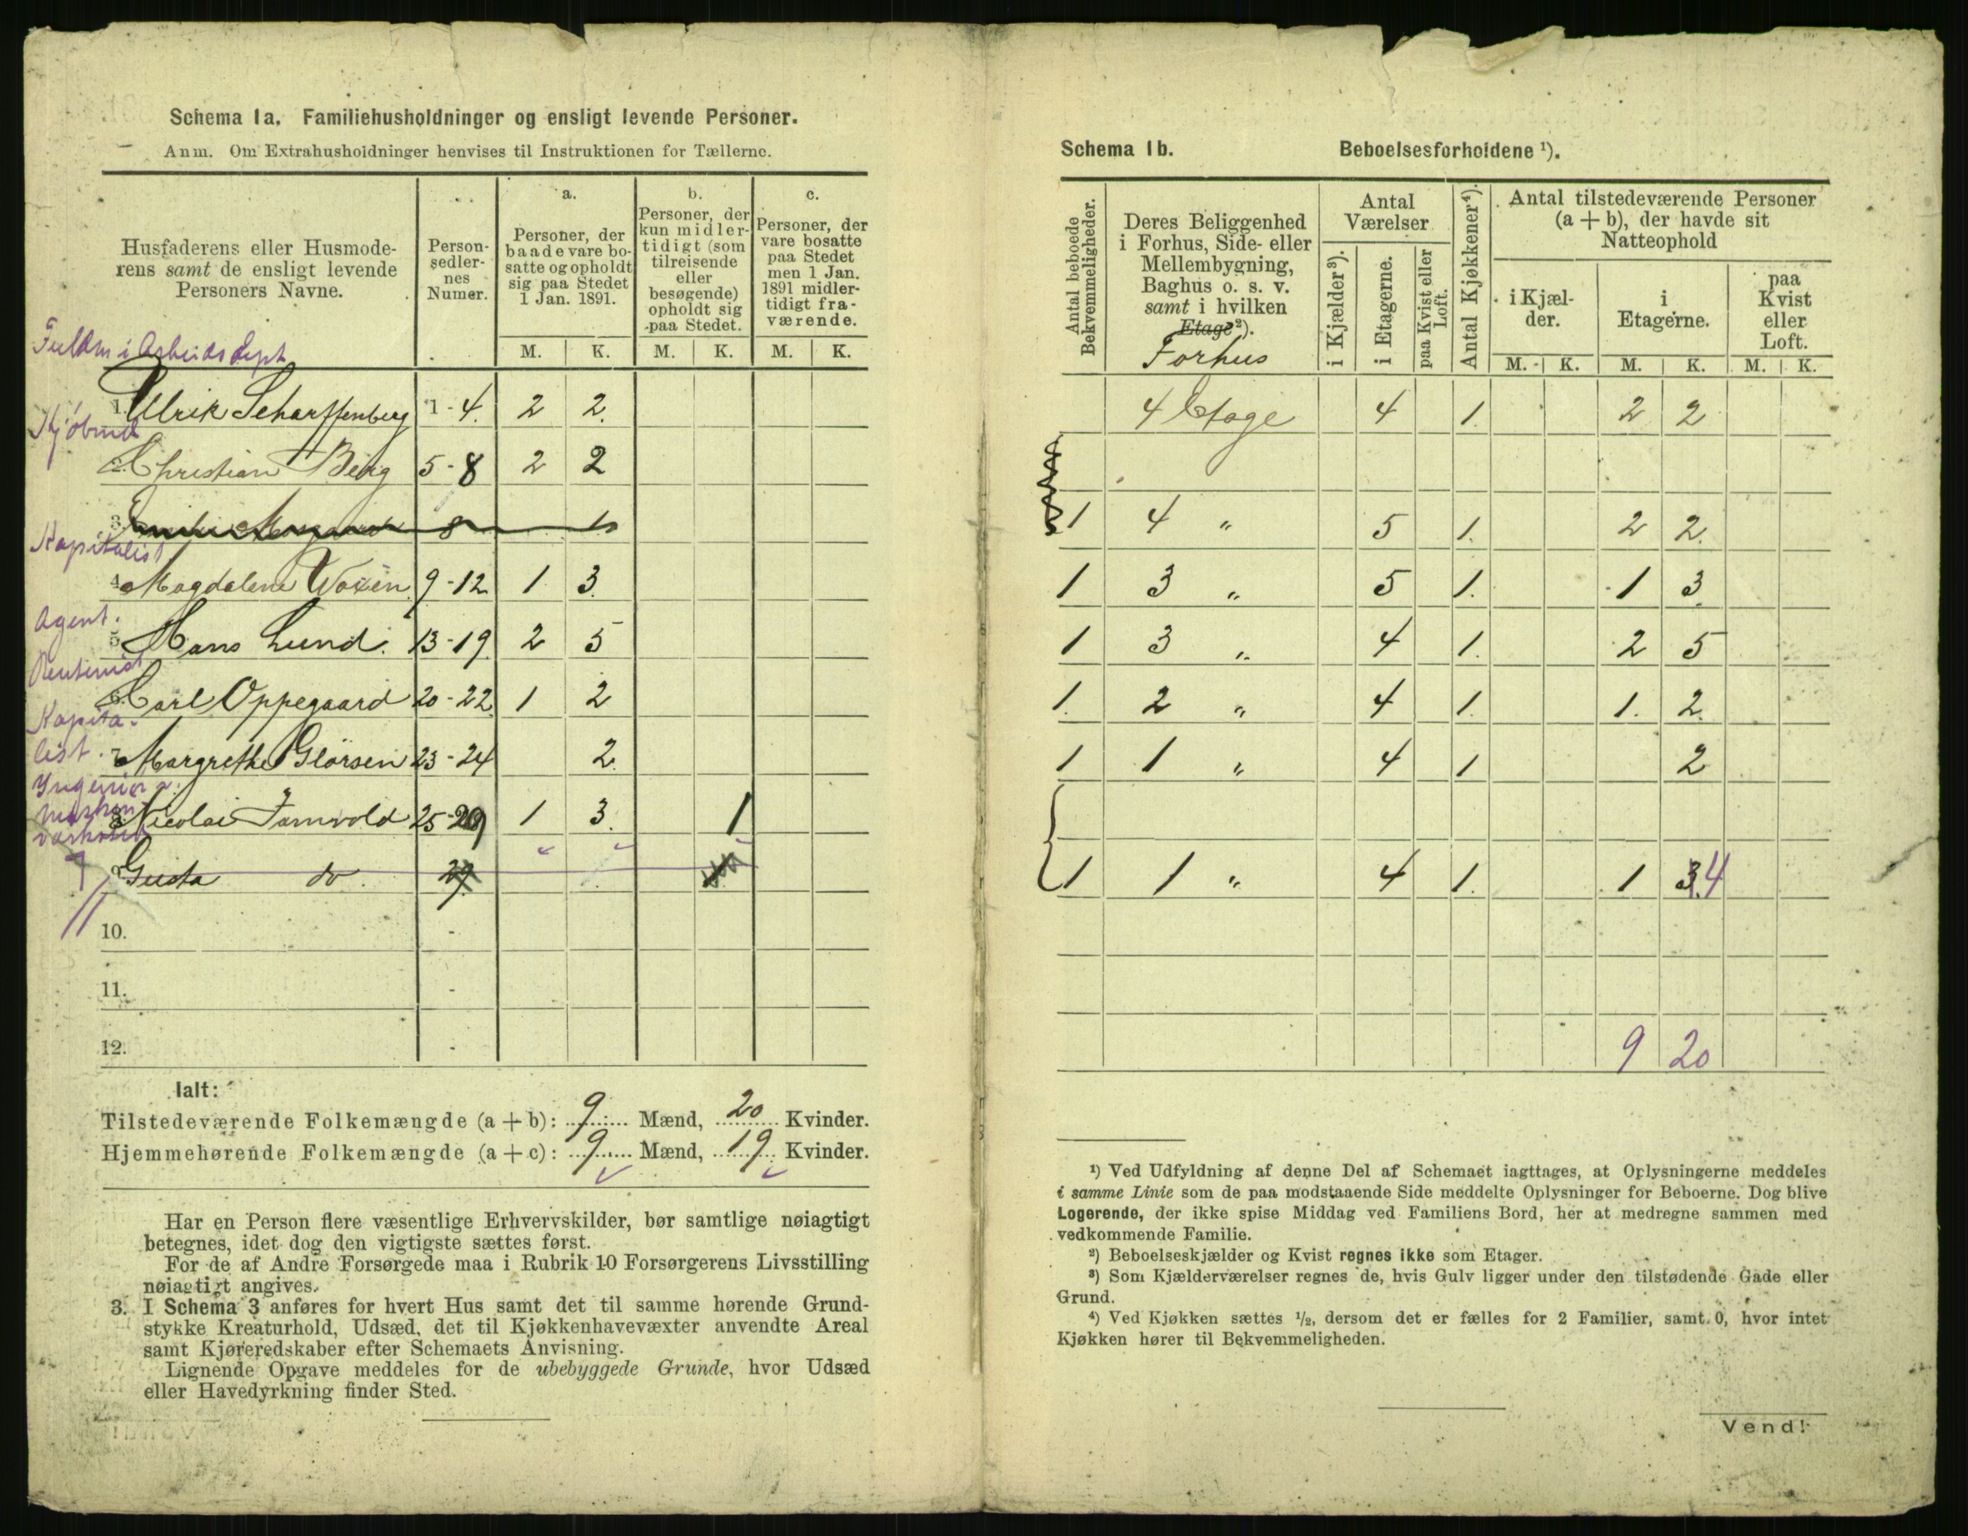 Schema 1a. Familiehusholdninger og ensligt levende Personer.
Anm. Om Extrahusholdninger henvises til Instruktionen for Tællerne.
Husfaderens eller Husmode-
rens samt de ensligt levende
Personers Navne.
Person-
sedler-
nes
Numer.
a.
Personer, der
baade vare bo-
satte og opholdt
sig paa Stedet
1 Jan. 1891.
b.
Personer, der
kun midler-
tidigt (som
tilreisende
eller
besøgende)
opholdt sig
paa Stedet.
c.
Personer, der
vare bosatte
paa Stedet
men 1 Jan.
1891 midler-
tidigt fra-
værende.
M. K. M. K. M. K.
i Arbeids Dept
1. Ulrik Scharffenberg 1-4. 2 2.
2. Christian Berg 5-8 2 2
3. 8 1
Kapitalist
4. Magdalene Woxen 9-12 1 3.
Agent.
5. Hans Lund. 13-19. 2 5
Rentenist
6. Carl Oppegaard 20-22. 1 2
Kapita-
list.
7. Margrethe Glørsen 23-24 2.
8. Nicolai Jarnvold 25-29 1 3. 1
9. Gusta do. 29. 1
10. -
11. -
12. -
Ialt:
Tilstedeværende Folkemængde (a + b): 9 Mænd, 20 Kvinder.
Hjemmehørende Folkemængde (a + c): 9 Mænd, 19 Kvinder.
Har en Person flere væsentlige Erhvervskilder, bør samtlige nøiagtigt
betegnes, idet dog den vigtigste sættes først.
For de af Andre Forsørgede maa i Rubrik 10 Forsørgerens Livsstilling
nøiagtigt angives.
3. I Schema 3 anføres for hvert Hus samt det til samme hørende Grund-
stykke Kreaturhold, Udsæd, det til Kjøkkenhavevæxter anvendte Areal
samt Kjøreredskaber efter Schemaets Anvisning.
Lignende Opgave meddeles for de ubebyggede Grunde, hvor Udsæd
eller Havedyrkning finder Sted.
Schema 1b. Beboelsesforholdene ¹).
Antal beboede
Bekvemmeligheder.
Deres Beliggenhed
i Forhus, Side- eller
Mellembygning,
Baghus o. s. v.
samt i hvilken
Etage ²).
Forhus
Antal
Værelser
i Kjælder ³).
i Etagerne.
paa Kvist eller
Loft.
Antal Kjøkkener ⁴).
Antal tilstedeværende Personer
(a + b), der havde sit
Natteophold
i Kjæl-
der.
i
Etagerne.
paa
Kvist
eller
Loft.
M. K. M. K. M. K.
4 Etage 4 1. 2 2
1 4 „ 5 1. 2 2.
1 3 „ 5 1. 1 3.
1 3 „ 4 1. 2 5
1. 2 „ 4 1. 1. 2.
1 1 „ 4 1 2
1 1 „ 4 1. 1 3.4
9 20
¹) Ved Udfyldning af denne Del af Schemaet iagttages, at Oplysningerne meddeles
i samme Linie som de paa modstaaende Side meddelte Oplysninger for Beboerne. Dog blive
Logerende, der ikke spise Middag ved Familiens Bord, her at medregne sammen med
vedkommende Familie.
²) Beboelseskjælder og Kvist regnes ikke som Etager.
³) Som Kjælderværelser regnes de, hvis Gulv ligger under den tilstødende Gade eller
Grund.
⁴) Ved Kjøkken sættes ½, dersom det er fælles for 2 Familier, samt 0, hvor intet
Kjøkken hører til Bekvemmeligheden.
Vend!